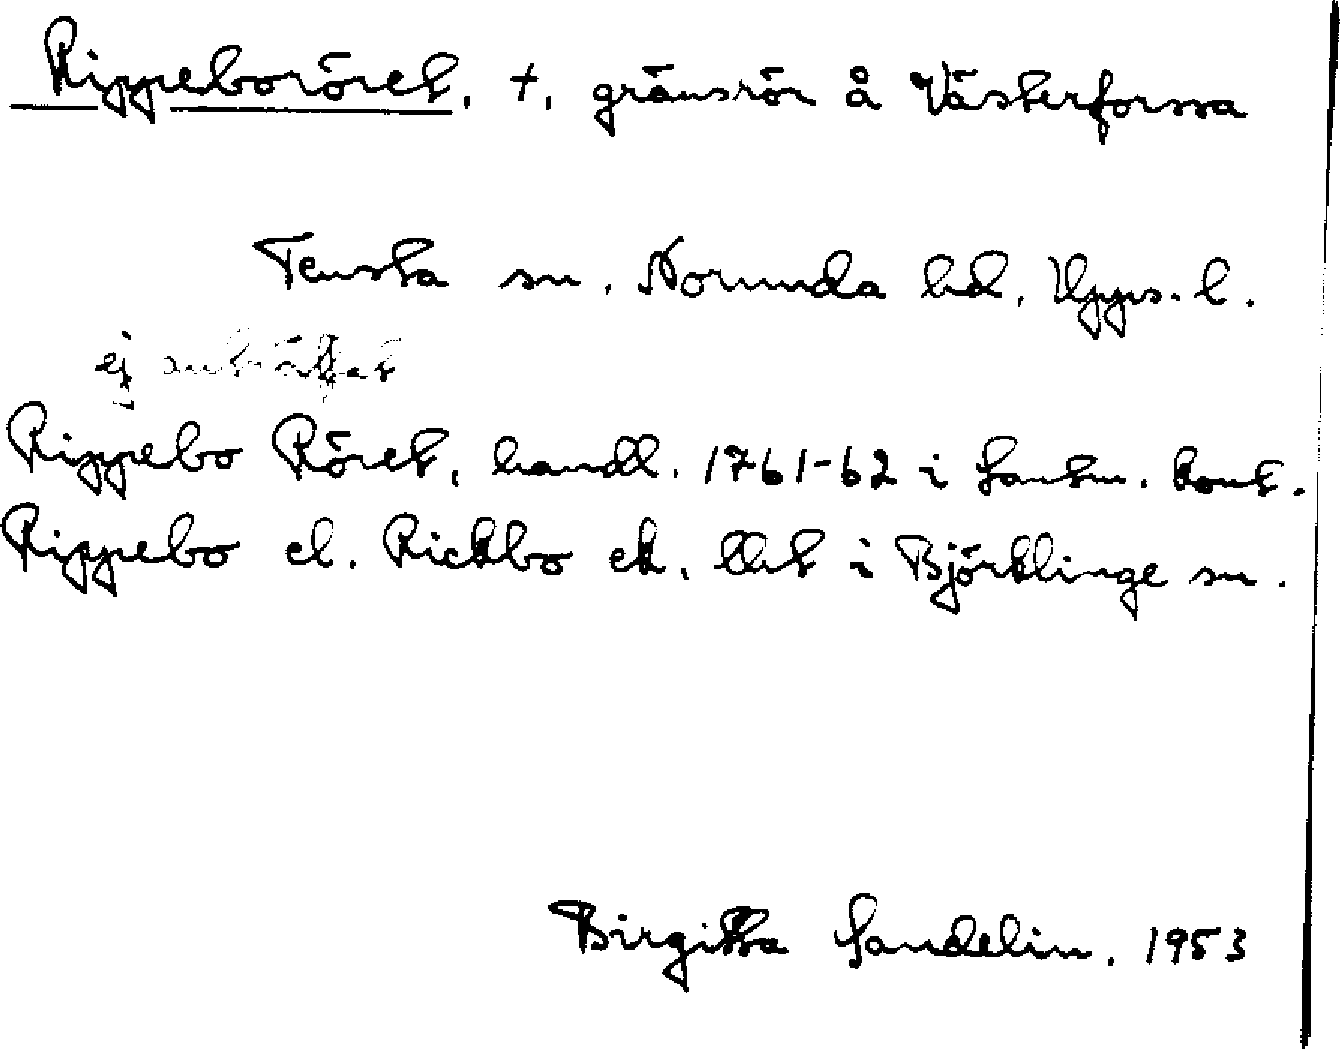 Rippeboröret, †, gränsrör å Västerforssa
Tensta sn, Norunda hd, Upps. l.
ej anträffat
Rippebo Röret, handl. 1761-62 i Lantm. kont.
Rippebo el. Rickbo ek. bl. t i Björklinge sn.
Birgitta Sandelin, 1953